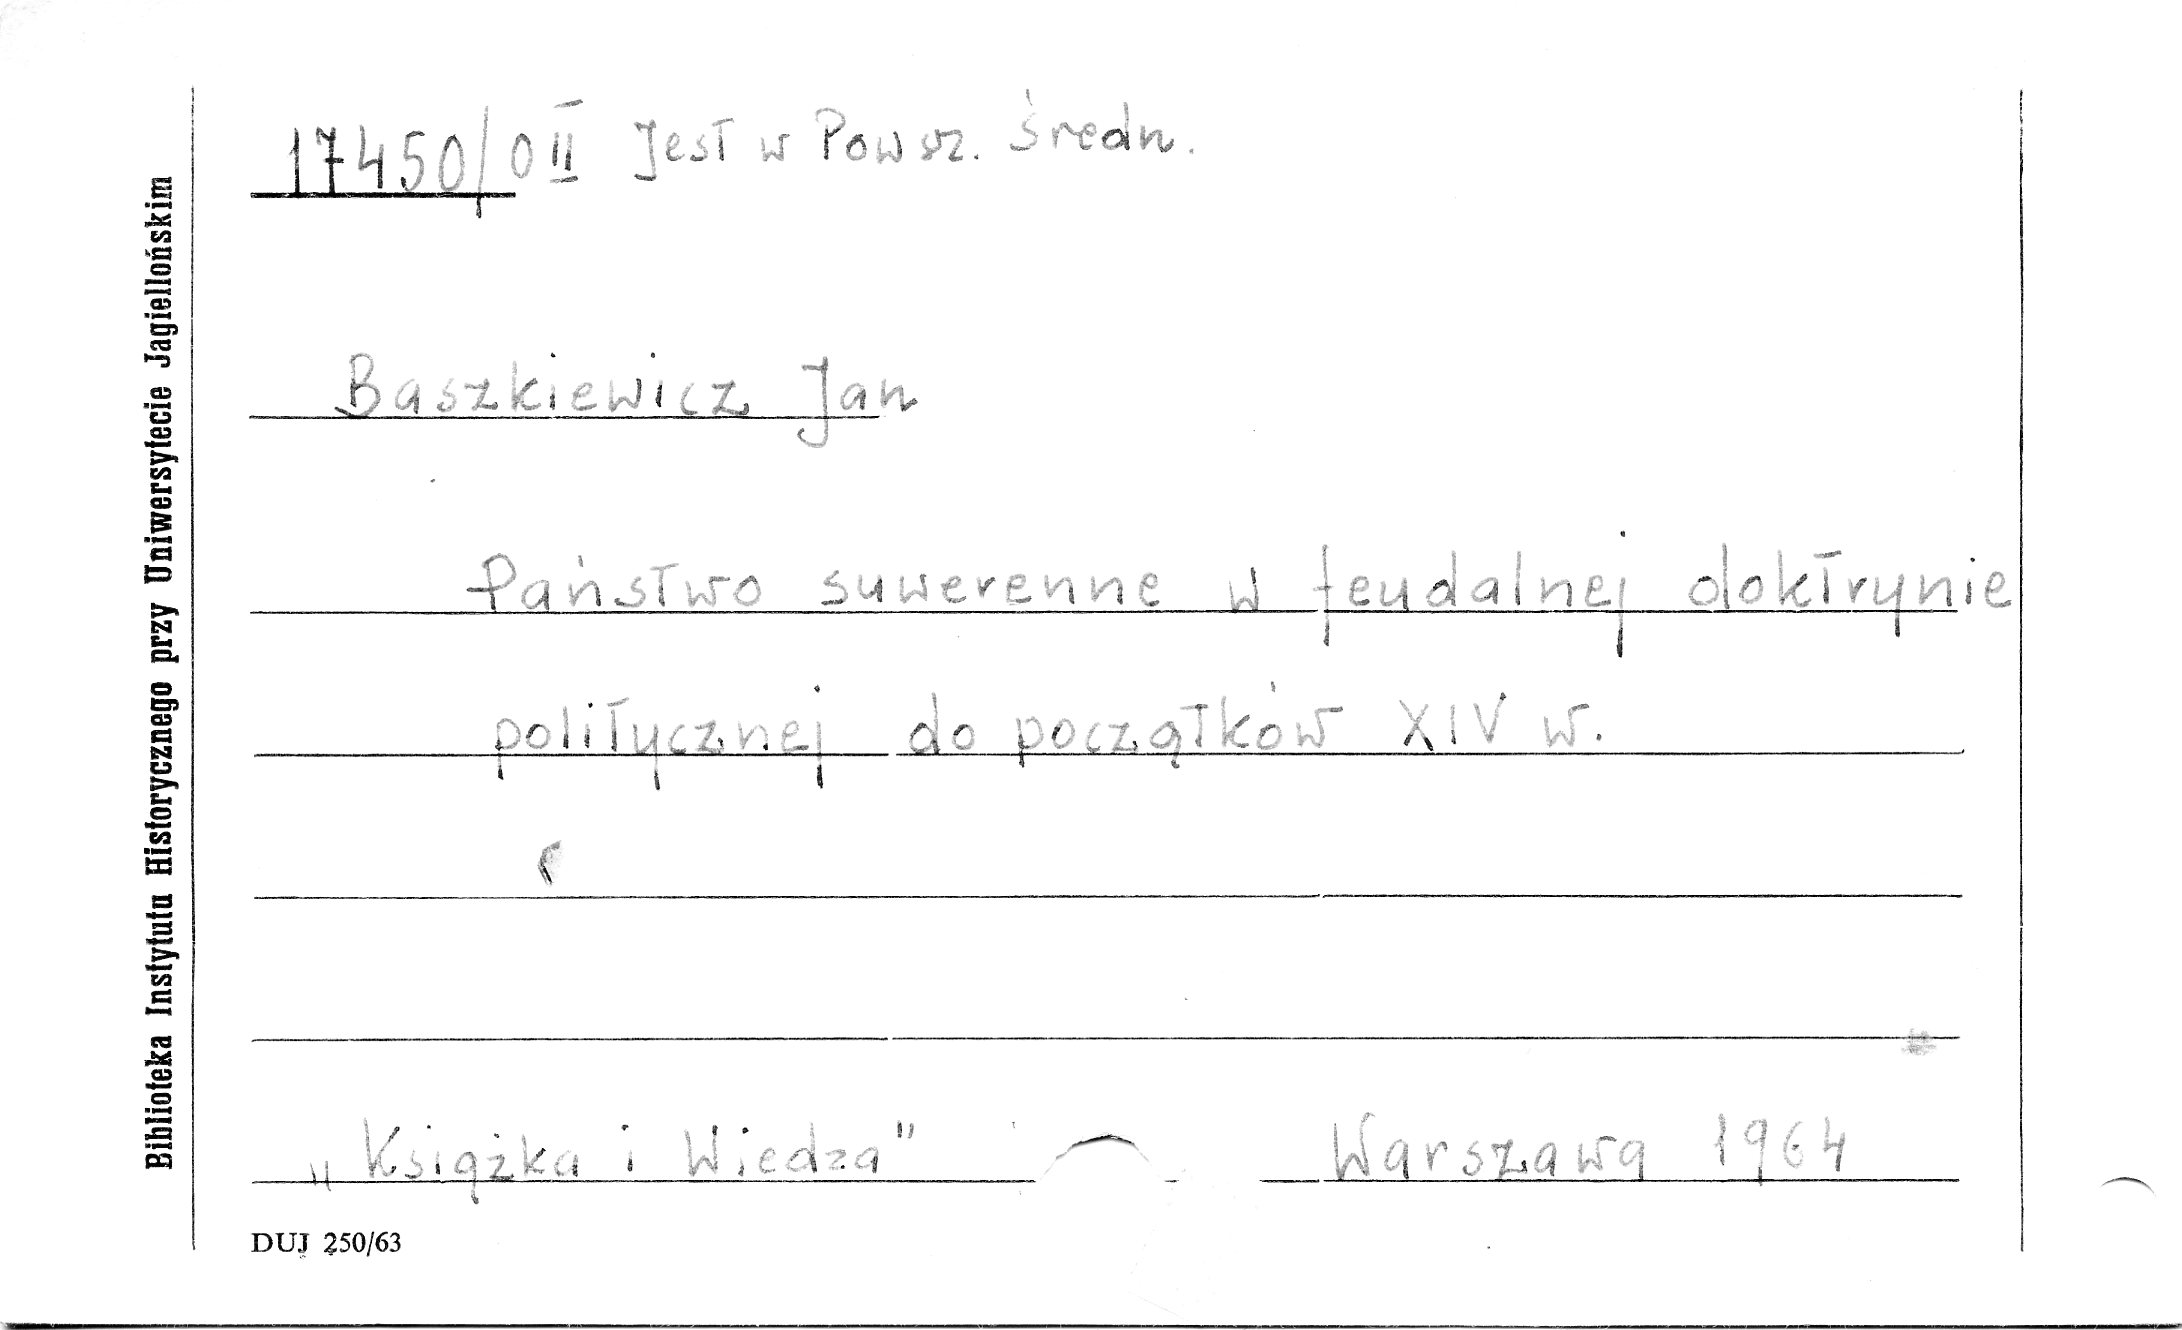 17450/0 II Jest w Powsz. Średn.
Baszkiewicz Jan
Państwo suwerenne w feudalnej doktrynie
politycznej do początków XIV w.
„Książka i Wiedza" Warszawa 1964
DUJ 250/63
Biblioteka Instytutu Historycznego przy Uniwersytecie Jagiellońskim